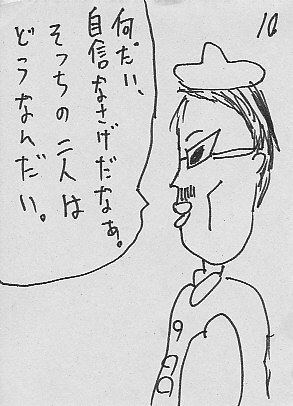 10
何だい、
自信なさげだなぁ。
そっちの二人は
どうなんだい。